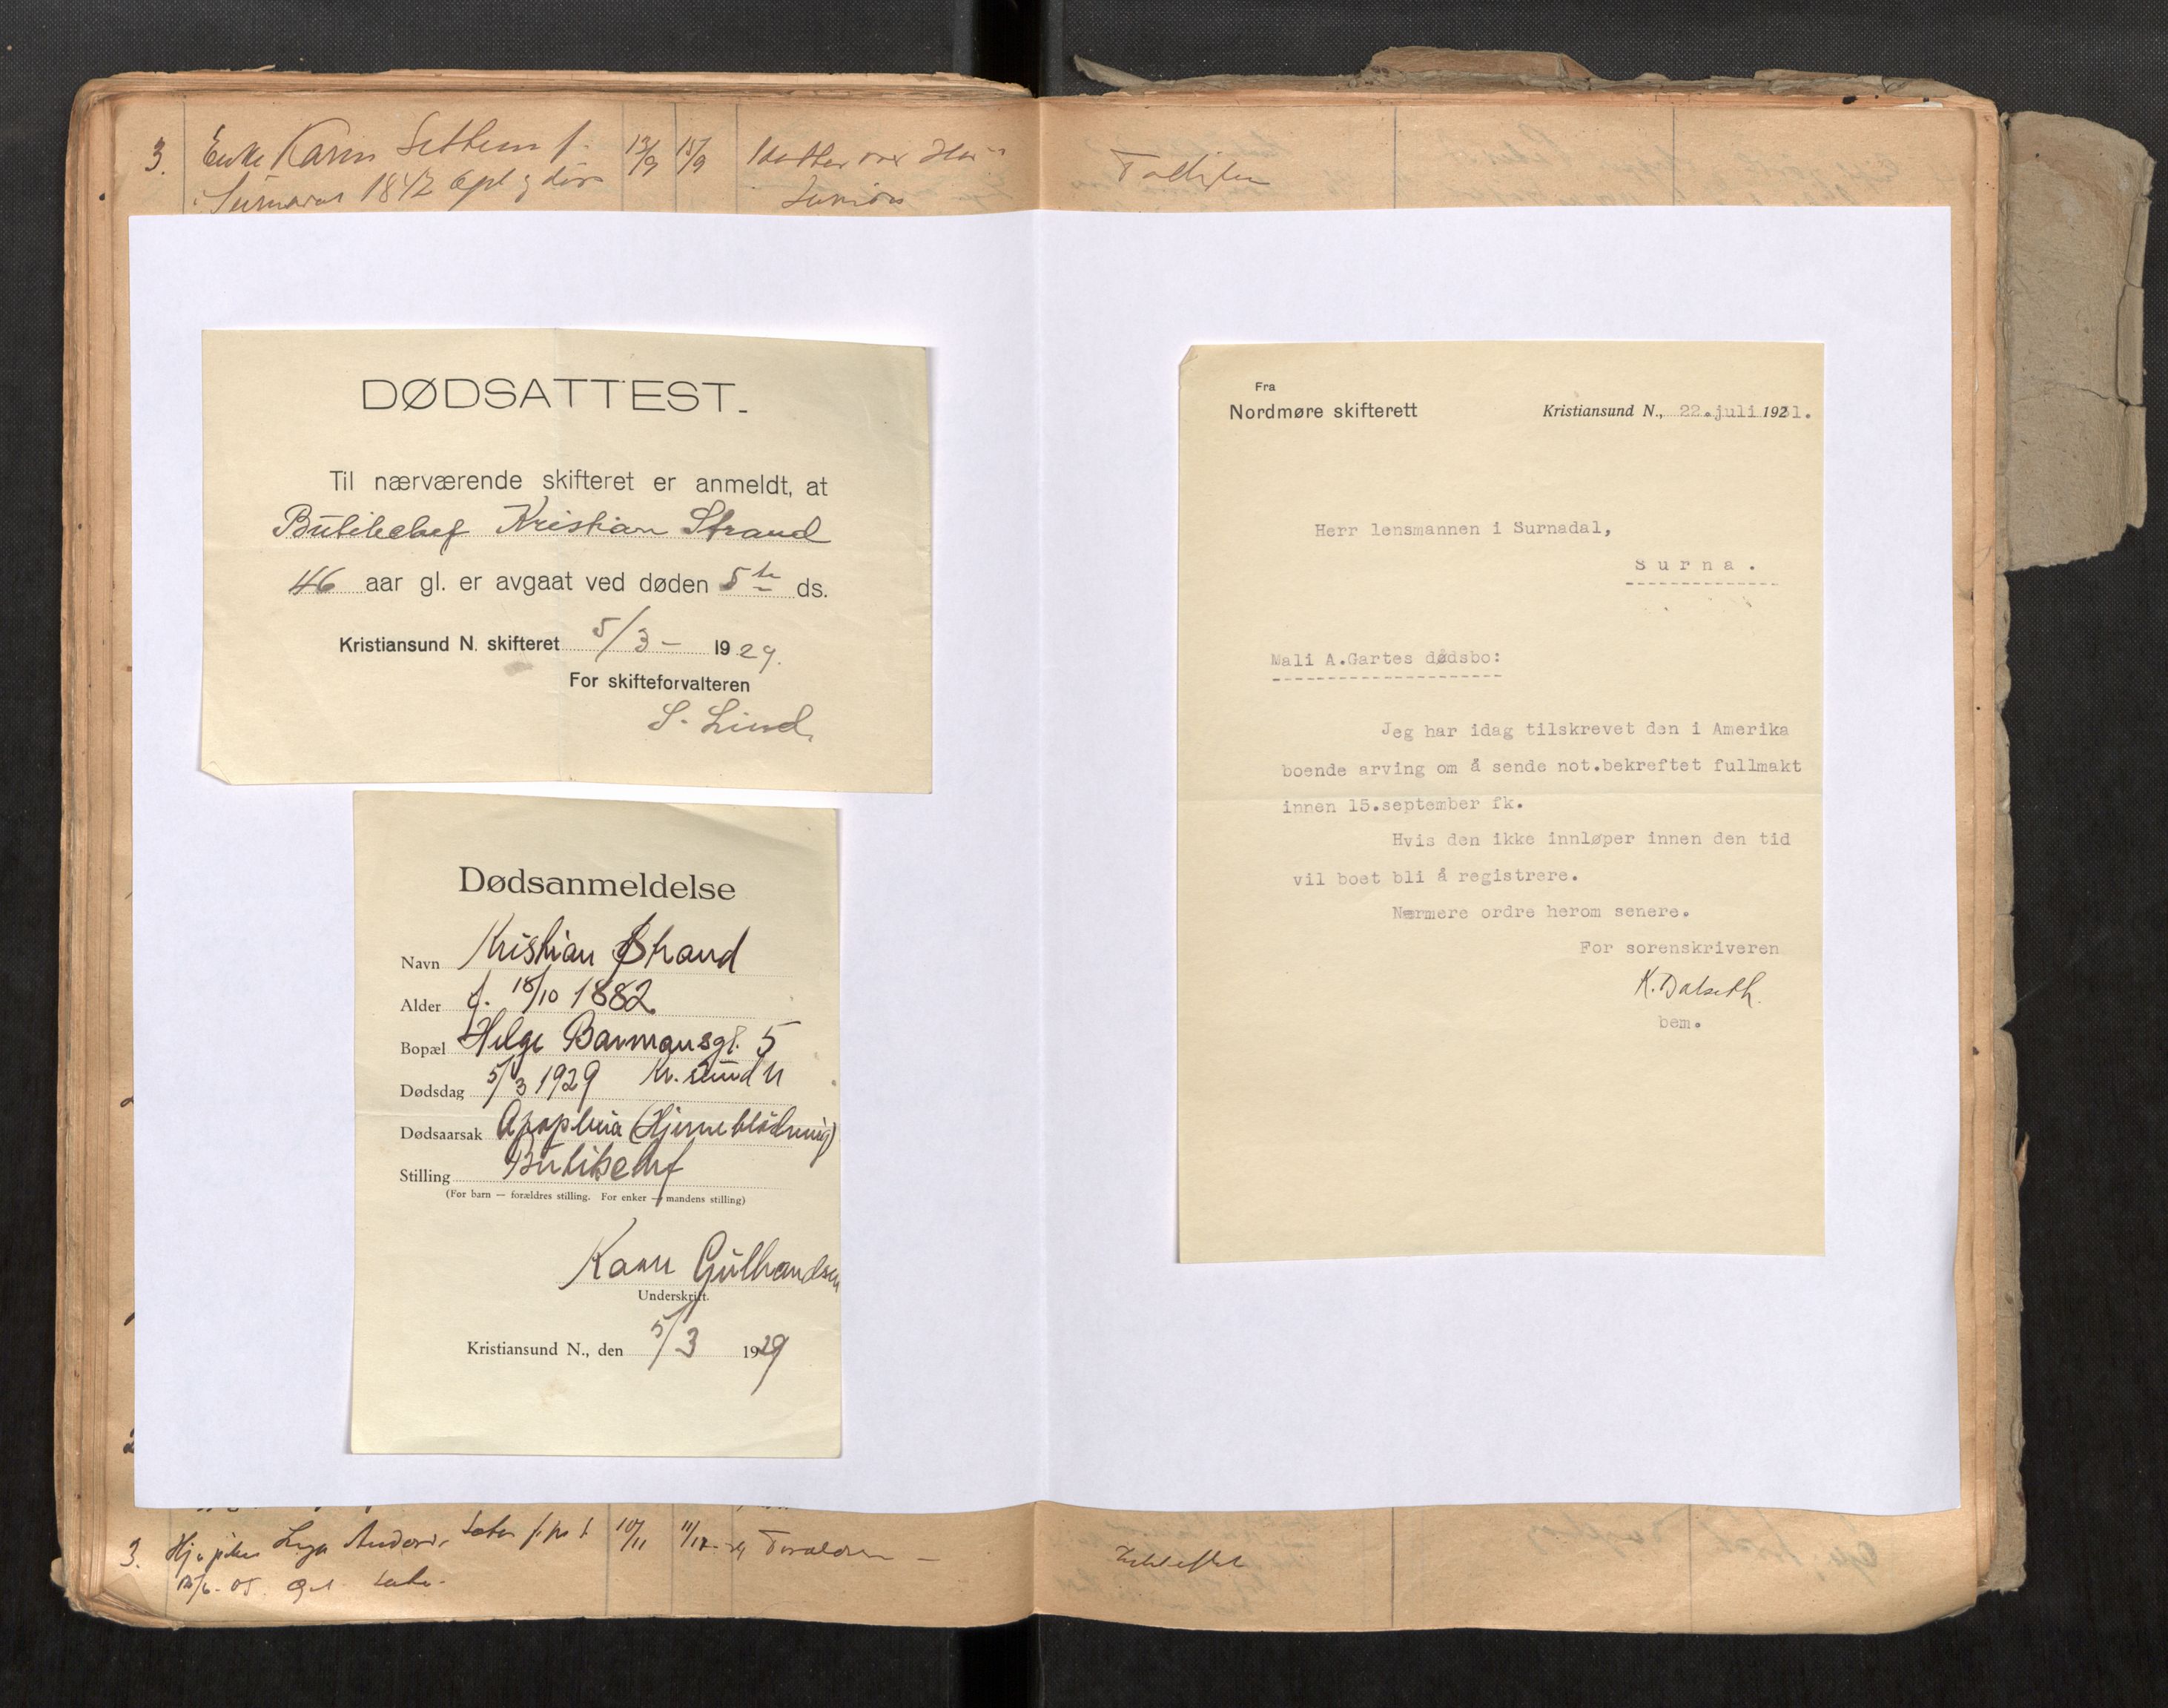 3. Enke Karen Settem f. 13/9 15/9
Surnadal 1842
DØDSATTEST.
Til nærværende skifteret er anmeldt, at
Butikchef Kristian Strand
46 aar gl. er avgaat ved døden 5te ds.
Kristiansund N. skifteret 5/3 - 1929.
For skifteforvalteren
S. Lind.
Dødsanmeldelse
Navn Kristian Strand
Alder f. 18/10 1882
Bopæl Helge Barmansgt. 5
Dødsdag 5/3 1929 Kr.sund N
Dødsaarsak Apoplexia (Hjerneblödning)
Stilling Butikchef
(For barn — forældres stilling. For enker — mandens stilling)
Underskrift.
Kristiansund N., den 5/3 1929
3. 10/11 11/12
Fra
Nordmøre skifterett Kristiansund N., 22.juli 1931.
Herr lensmannen i Surnadal,
Surna.
Mali A.Gartes dødsbo:
Jeg har idag tilskrevet den i Amerika
boende arving om å sende not.bekreftet fullmakt
innen 15.september fk.
Hvis den ikke innløper innen den tid
vil boet bli å registrere.
Nærmere ordre herom senere.
For sorenskriveren
K. Dalseth.
bem.